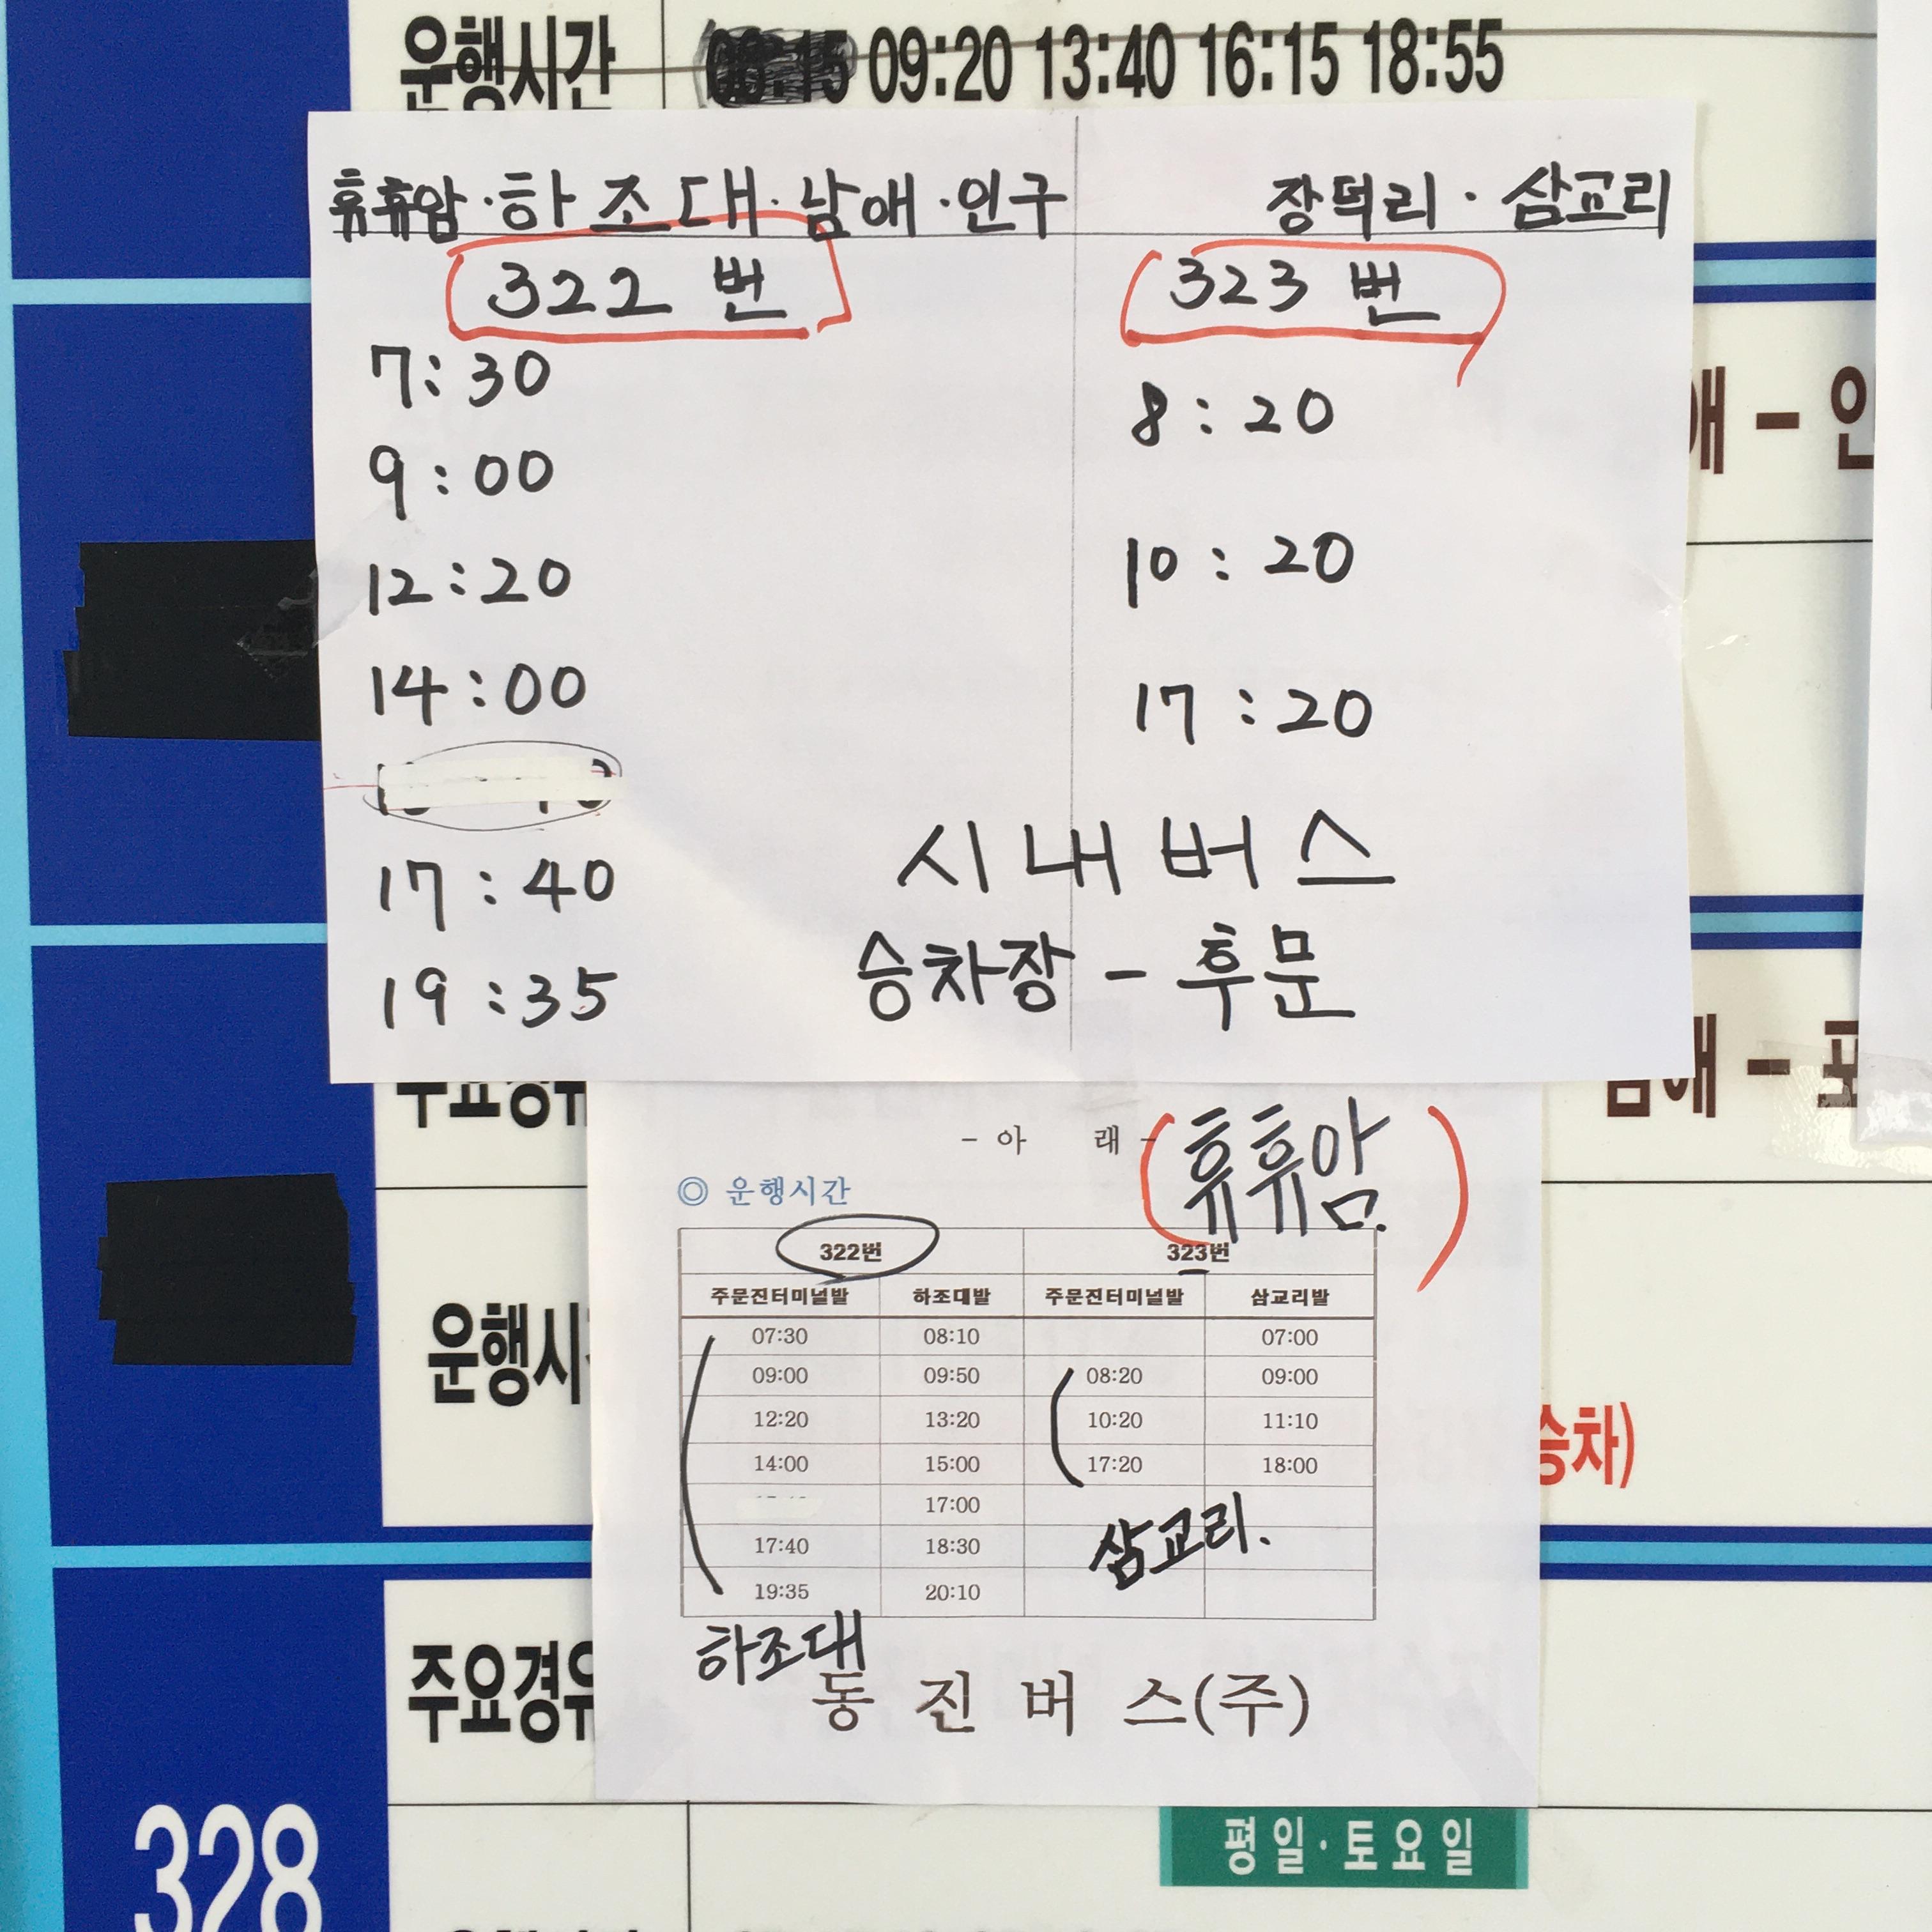 운행시간 09:20 13:40 16:15 18:55
휴휴암·하조대·남애·인구 장덕리·삼교리
322번 323번
7:30
8:20
9:00
10:20
12:20
14:00
17:20
17:40
19:35
시내버스
승차장-후문
애-인
남애-포
주요경유
-아 래-
(휴휴암)
◎ 운행시간
322번 323번
주문진터미널발 하조대발 주문진터미널발 삼교리발
07:30 08:10 07:00
09:00 09:50 08:20 09:00
12:20 13:20 10:20 11:10
14:00 15:00 17:20 18:00
17:00
17:40 18:30
19:35 20:10
삼교리.
하조대
동진버스(주)
운행시
승차)
주요경유
328
평일·토요일